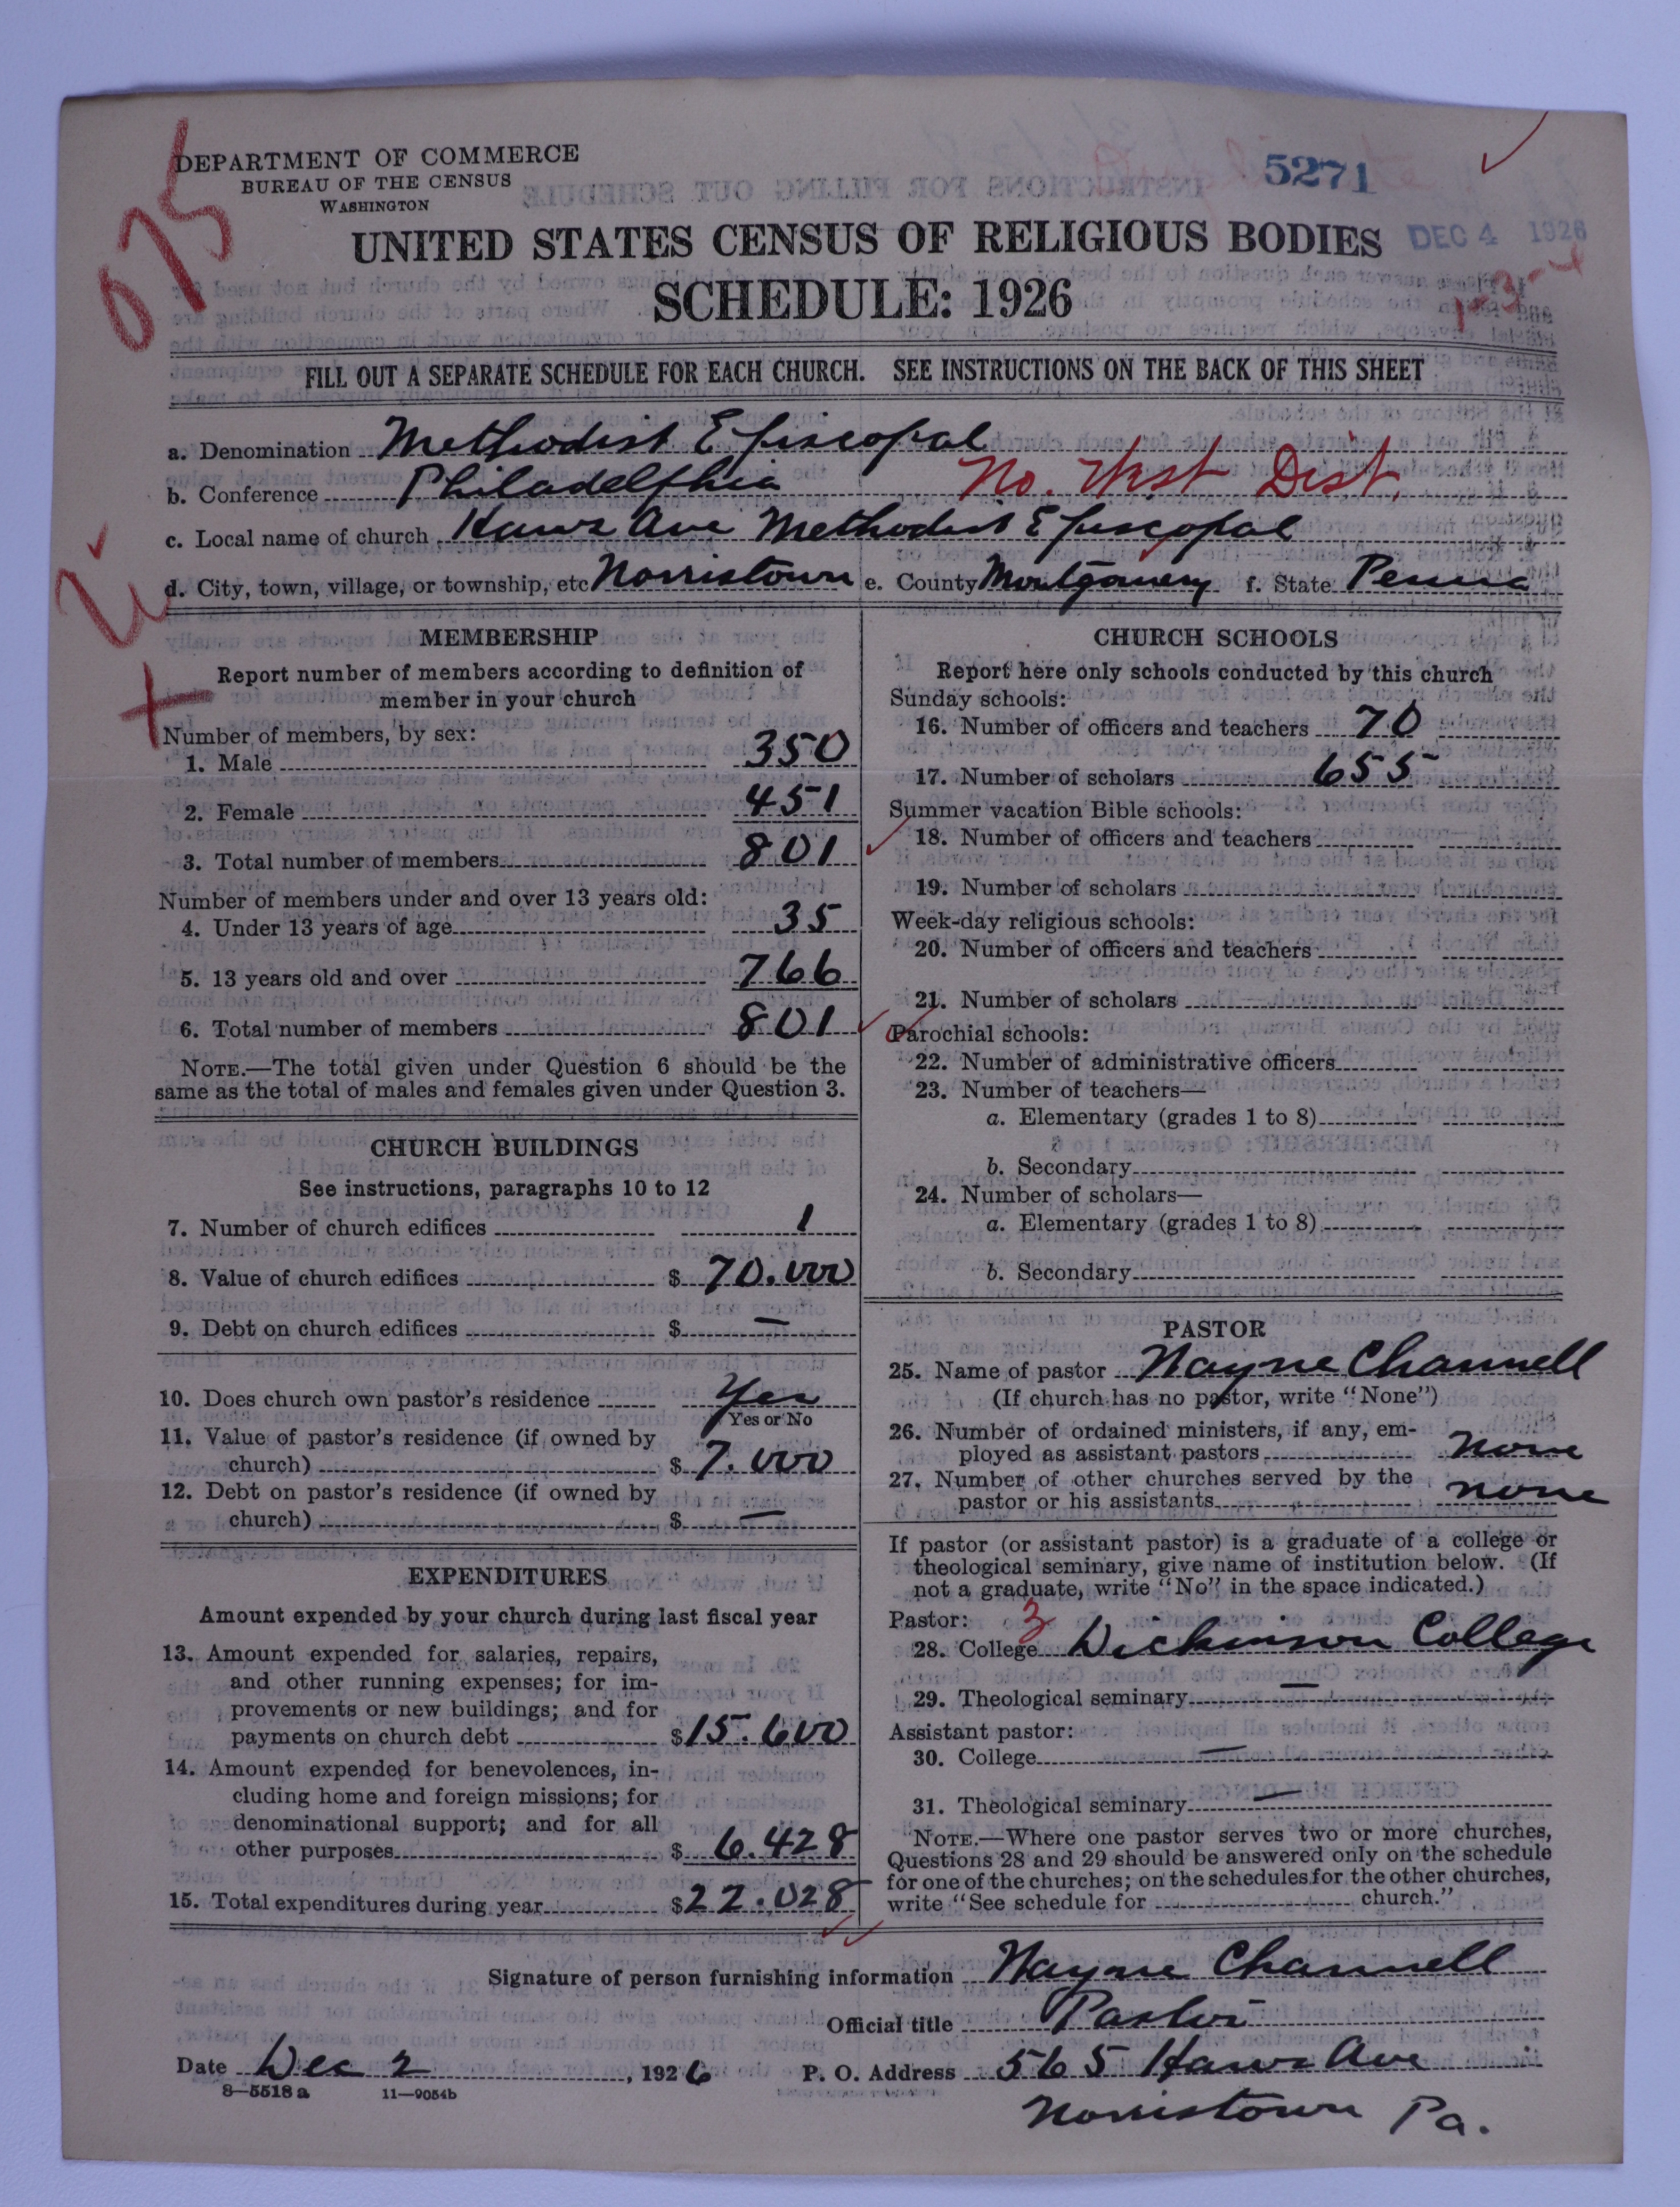 075
DEPARTMENT OF COMMERCE
BUREAU OF THE CENSUS
WASHINGTON
5271
DEC 4 1926
UNITED STATES CENSUS OF RELIGIOUS BODIES
SCHEDULE: 1926
1-3-4
FILL OUT A SEPARATE SCHEDULE FOR EACH CHURCH. SEE INSTRUCTIONS ON THE BACK OF THIS SHEET
a. Denomination Methodist Episcopal
b. Conference Philadelphia No. West Dist.
c. Local name of church Haws Ave Methodist Episcopal
d. City, town, village, or township, etc Norristown e. County Montgomery f. State Penna
MEMBERSHIP
Report number of members according to definition of
member in your church
Number of members, by sex:
1. Male 350
2. Female 451
3. Total number of members 801
Number of members under and over 13 years old:
4. Under 13 years of age 35
5. 13 years old and over 766
6. Total number of members 801
NOTE.—The total given under Question 6 should be the
same as the total of males and females given under Question 3.
CHURCH BUILDINGS
See instructions, paragraphs 10 to 12
7. Number of church edifices 1
8. Value of church edifices $ 70.000
9. Debt on church edifices $ —
10. Does church own pastor's residence Yes
Yes or No
11. Value of pastor's residence (if owned by
church) $ 7.000
12. Debt on pastor's residence (if owned by
church) $ —
EXPENDITURES
Amount expended by your church during last fiscal year
13. Amount expended for salaries, repairs,
and other running expenses; for im-
provements or new buildings; and for
payments on church debt $ 15.600
14. Amount expended for benevolences, in-
cluding home and foreign missions; for
denominational support; and for all
other purposes $ 6.428
15. Total expenditures during year $ 22.028
CHURCH SCHOOLS
Report here only schools conducted by this church
Sunday schools:
16. Number of officers and teachers 70
17. Number of scholars 655
Summer vacation Bible schools:
18. Number of officers and teachers
19. Number of scholars
Week-day religious schools:
20. Number of officers and teachers
21. Number of scholars
Parochial schools:
22. Number of administrative officers
23. Number of teachers—
a. Elementary (grades 1 to 8)
b. Secondary
24. Number of scholars—
a. Elementary (grades 1 to 8)
b. Secondary
PASTOR
25. Name of pastor Wayne Channell
(If church has no pastor, write "None")
26. Number of ordained ministers, if any, em-
ployed as assistant pastors None
27. Number of other churches served by the
pastor or his assistants none
If pastor (or assistant pastor) is a graduate of a college or
theological seminary, give name of institution below. (If
not a graduate, write "No" in the space indicated.)
Pastor: 3
28. College Dickinson College
29. Theological seminary —
Assistant pastor:
30. College —
31. Theological seminary —
NOTE.—Where one pastor serves two or more churches,
Questions 28 and 29 should be answered only on the schedule
for one of the churches; on the schedules for the other churches,
write "See schedule for church."
Signature of person furnishing information Wayne Channell
Official title Pastor
Date Dec 2, 1926 P. O. Address 565 Haws Ave
8—5518 a 11—9054b
Norristown Pa.